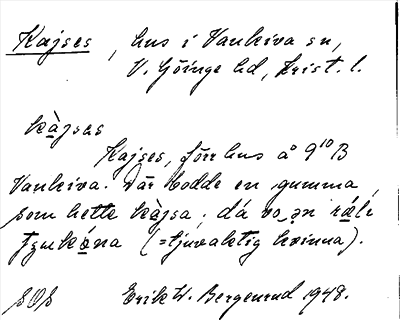 Kajses, hus i Vankiva sn,
V. Göinge hd, Krist. l.
kàjsas
Kajses, förr hus å 9¹⁰ B
Vankiva. Där bodde en gumma
som hette kàjsa. då vo ən
(=tjuvaktig kvinna).
Erik W. Bergenrud 1948.